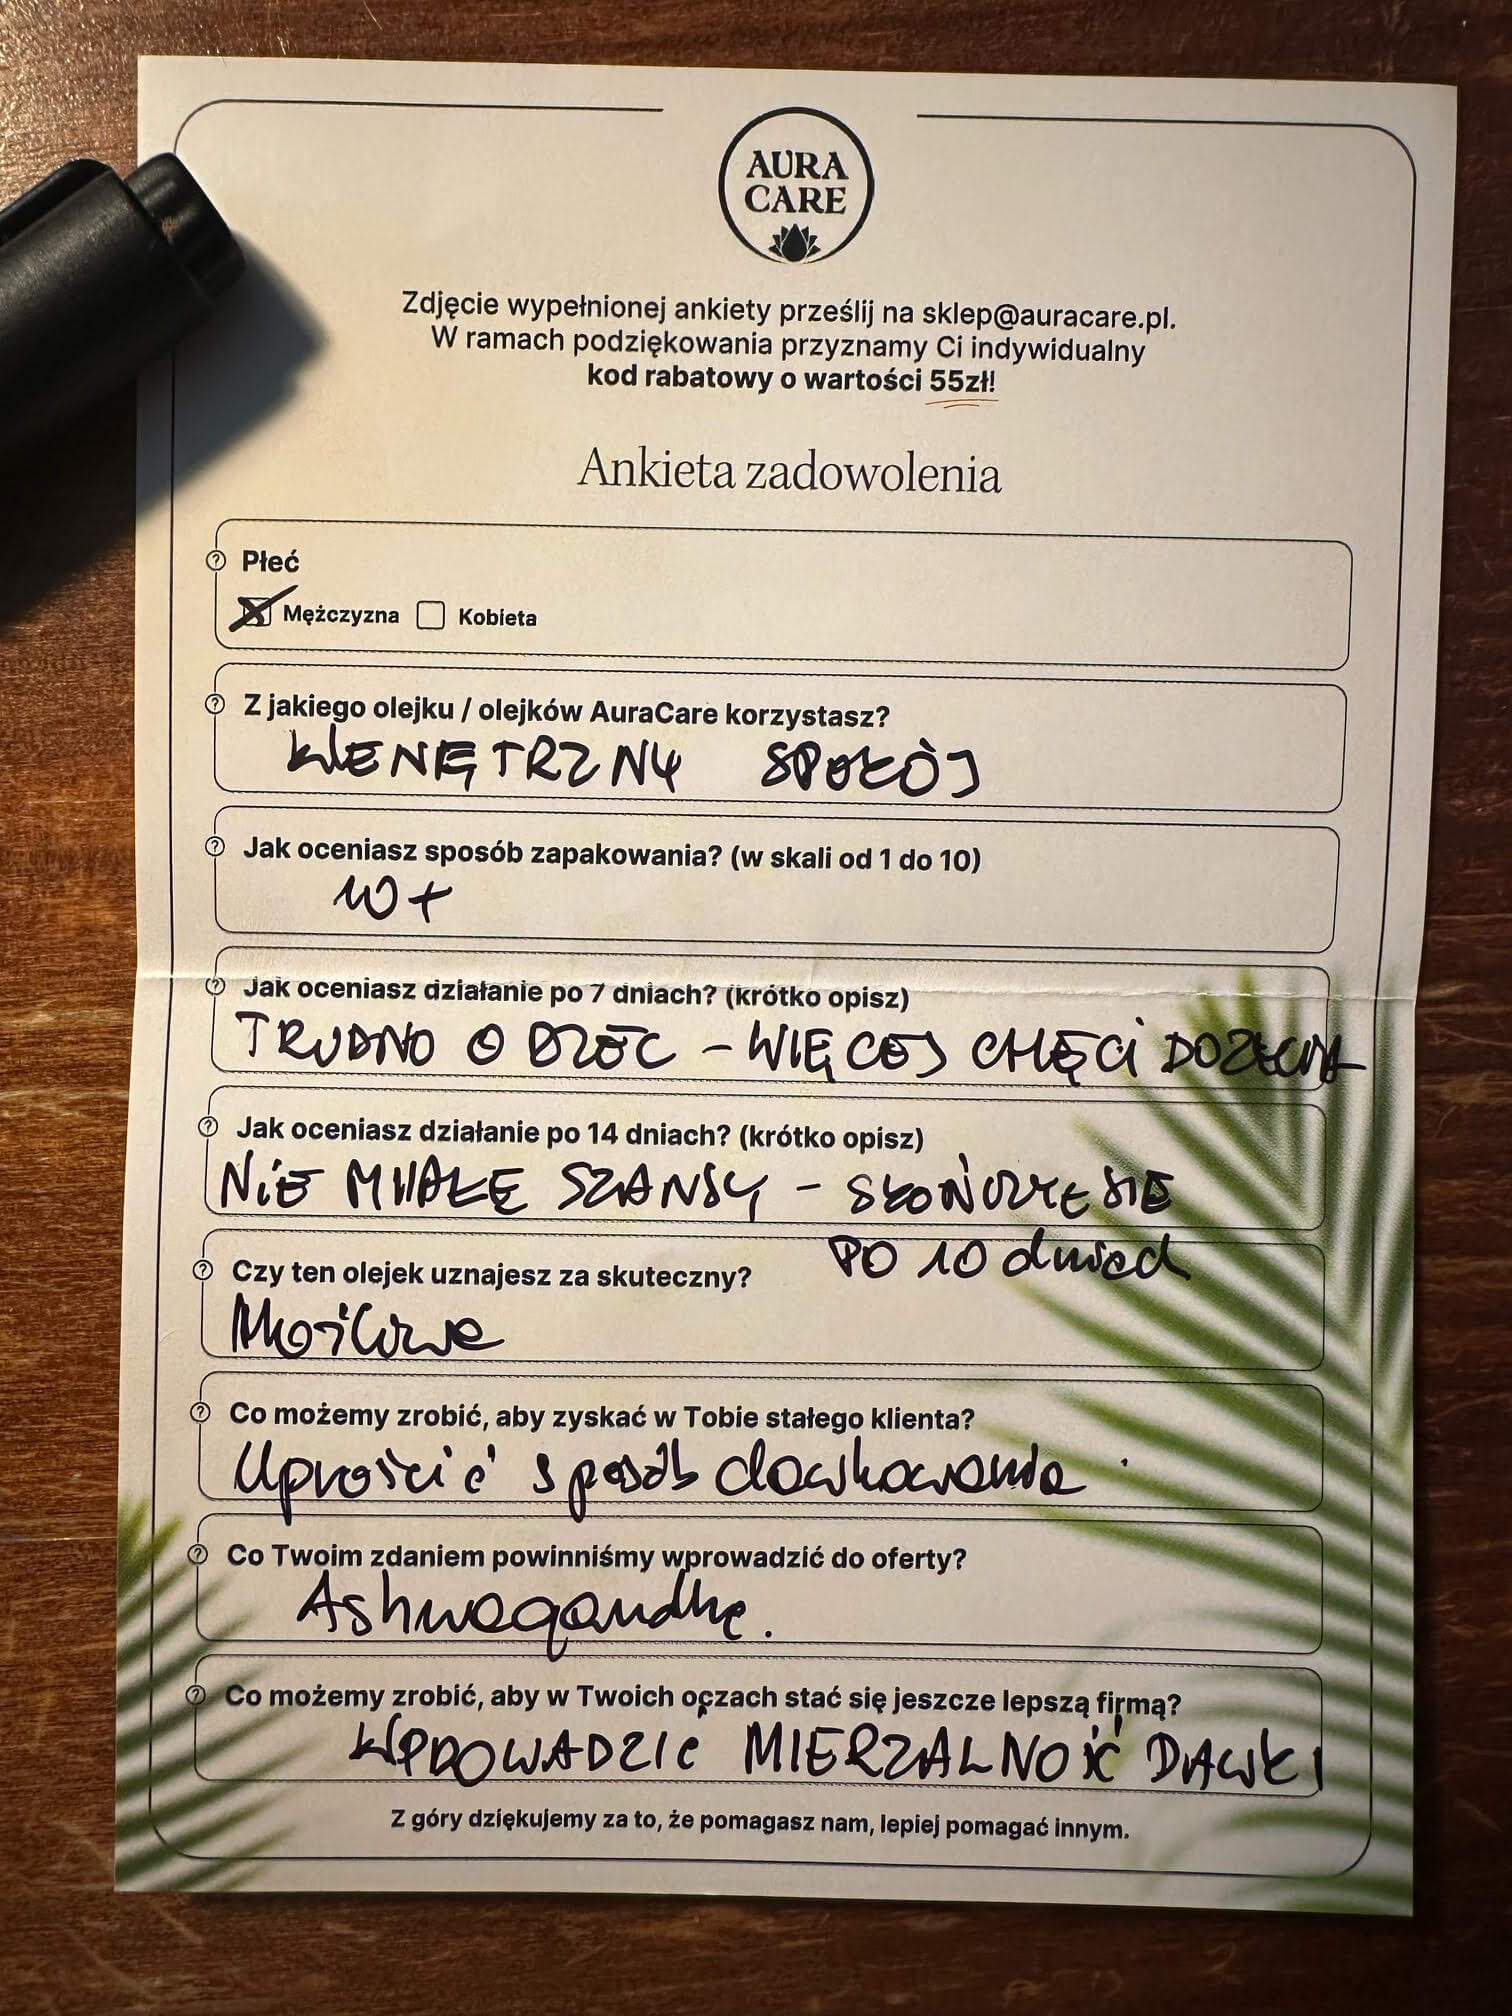 AURA
CARE
Zdjęcie wypełnionej ankiety prześlij na sklep@auracare.pl.
W ramach podziękowania przyznamy Ci indywidualny
kod rabatowy o wartości 55zł!
Ankieta zadowolenia
Płeć
Mężczyzna Kobieta
Z jakiego olejku / olejków AuraCare korzystasz?
WENĘTRZNY SPOKÓJ
Jak oceniasz sposób zapakowania? (w skali od 1 do 10)
10+
Jak oceniasz działanie po 7 dniach? (krótko opisz)
TRUDNO O - WIĘCEJ CHĘCI DO
Jak oceniasz działanie po 14 dniach? (krótko opisz)
NIE SZANSY - SIE
PO 10 dniach
Czy ten olejek uznajesz za skuteczny?
Możliwe
Co możemy zrobić, aby zyskać w Tobie stałego klienta?
Uprościć sposób dawkowania.
Co Twoim zdaniem powinniśmy wprowadzić do oferty?
Ashwagandhę.
Co możemy zrobić, aby w Twoich oczach stać się jeszcze lepszą firmą?
WPROWADZIĆ MIERZALNOŚĆ DAWKI
Z góry dziękujemy za to, że pomagasz nam, lepiej pomagać innym.